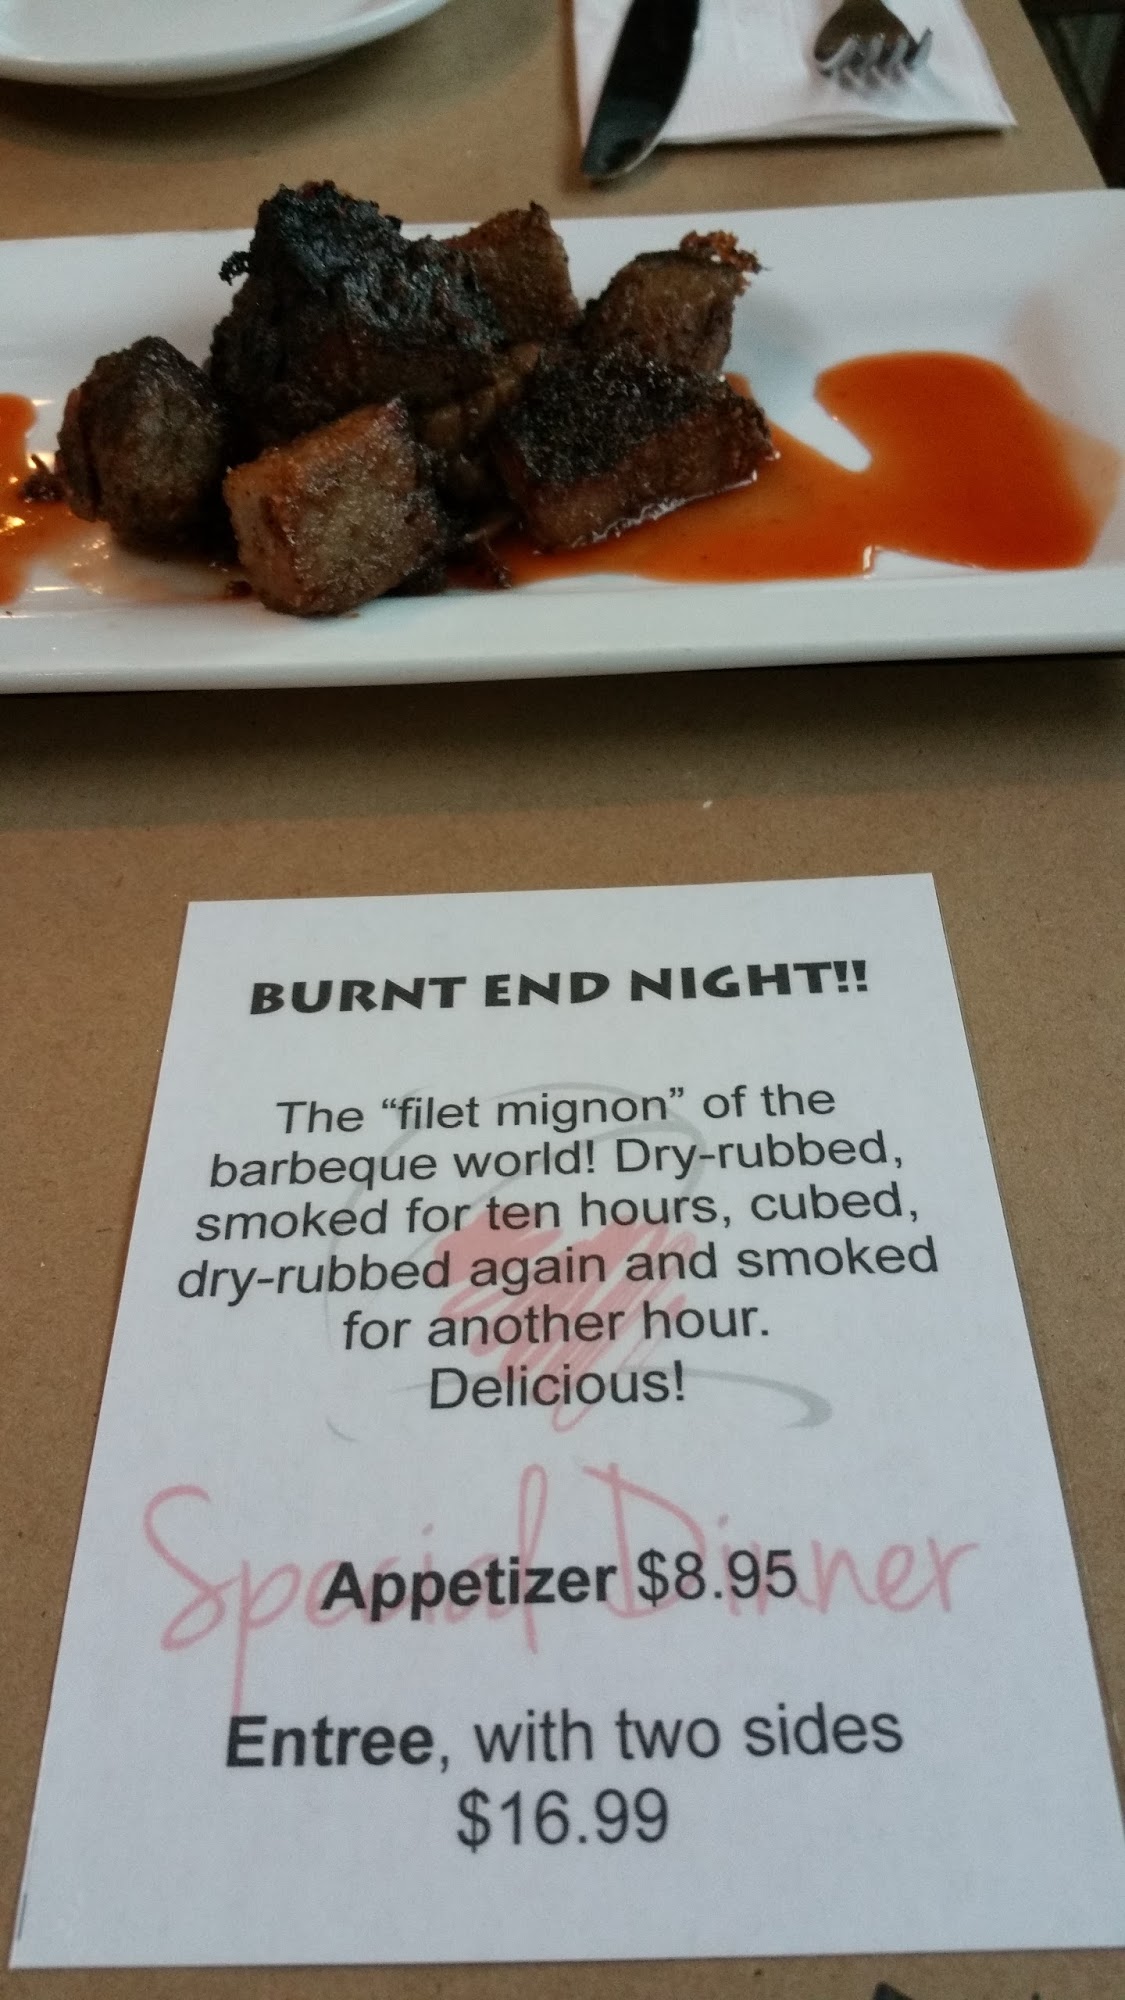 BURNT END NIGHT!!
The “filet mignon” of the
barbeque world! Dry-rubbed,
smoked for ten hours, cubed,
dry-rubbed again and smoked
for another hour.
Delicious!
Special Dinner
Appetizer $8.95
Entree, with two sides
$16.99